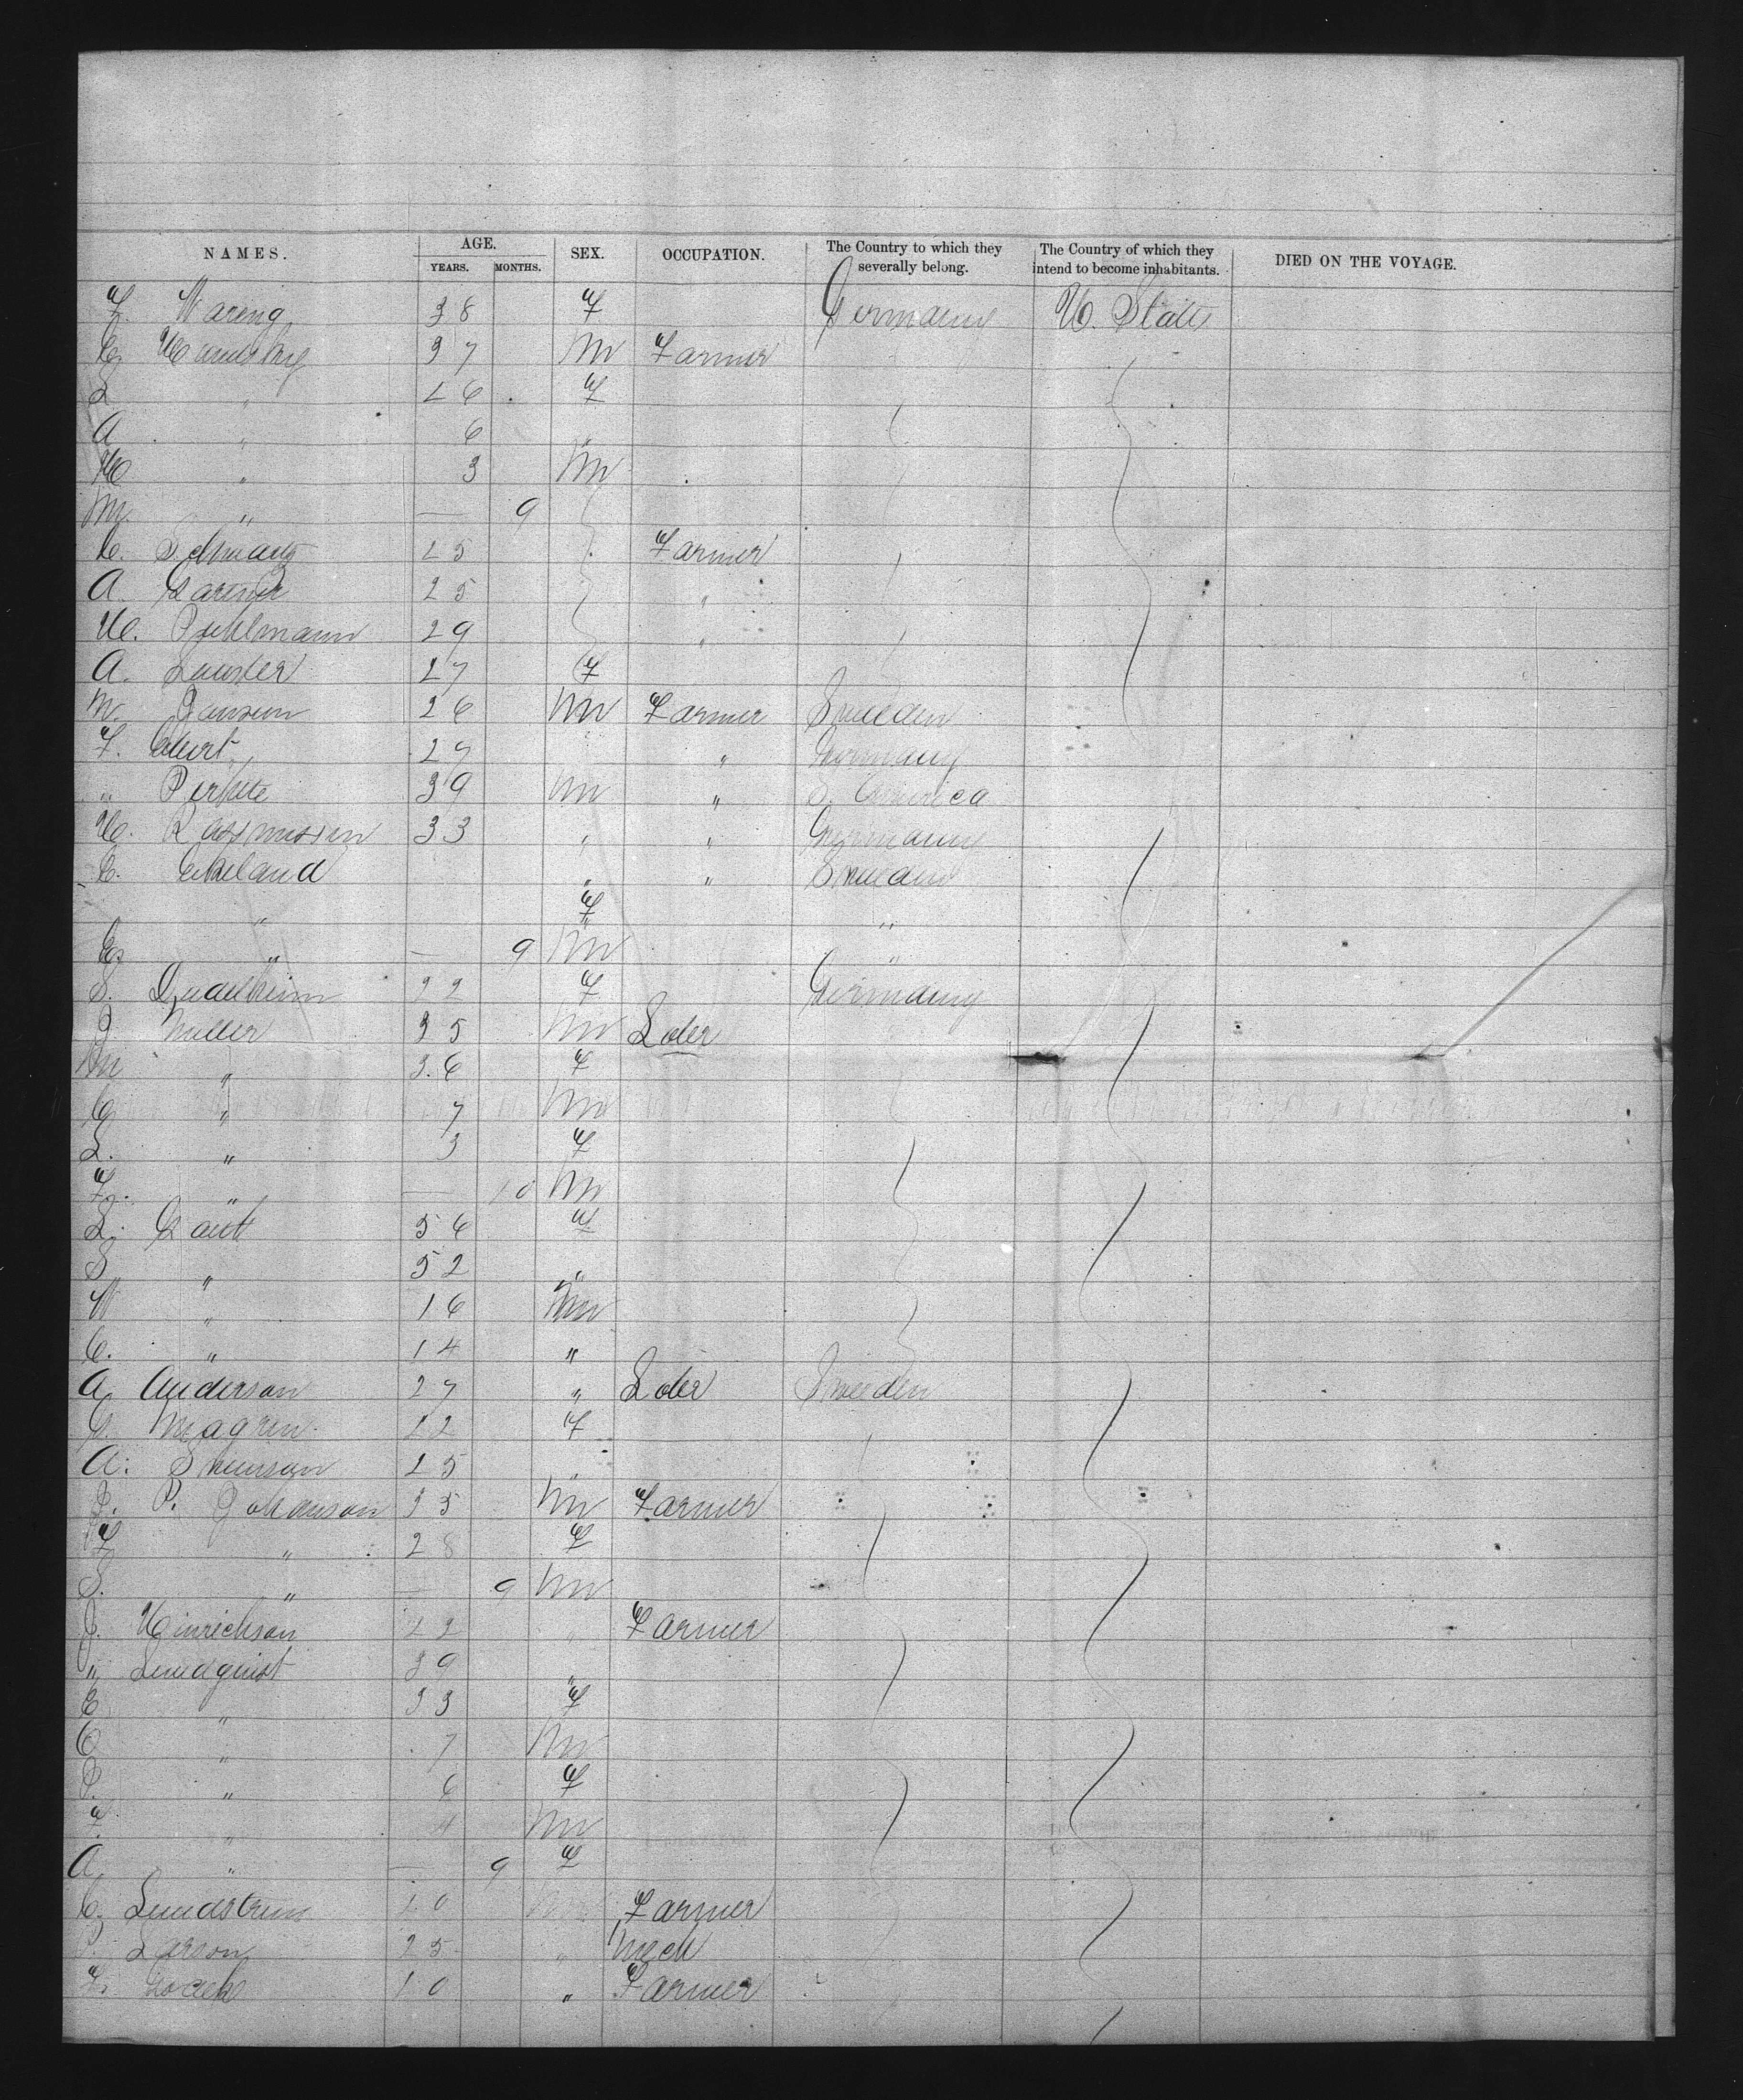 NAMES. AGE. SEX. OCCUPATION. The Country to which they severally belong. The Country of which they intend to become inhabitants. DIED ON THE VOYAGE.
YEARS. MONTHS.
F. Waring 38 F Germany U. States
37 M Farmer
L " 26 F
A " 6 "
H " 3 M
M. " — 9
C. Schwartz 25 Farmer
A. 25 "
H. Puhlmann 29 "
A. 27 F
M. Jansen 26 M Farmer Sweden
F. 27 " Germany
" 39 M " S. America
H. Rassmussen 33 " " Germany
E. Ekeland " " Sweden
" F "
" — 9 M "
S. 22 F Germany
J. Miller 35 M
M " 36 F
G " 7 M
L. " 3 F
F. " — 10 M
L. 56 F
S " 52 "
W " 16 M
C. " 14 "
A. Anderson 27 " Sweden
Magren 22 F
A. Swenson 25 "
P. Johanson 35 M Farmer
F " 28 F
S. " — 9 M
J. Hinrichson 22 " Farmer
" Lundquist 39 "
E " 33 F
C " 7 M
" 6 F
F. " 4 M
A. " — 9 F
C. Lundstrum 20 M Farmer
Larson 25 " Mech
20 " Farmer